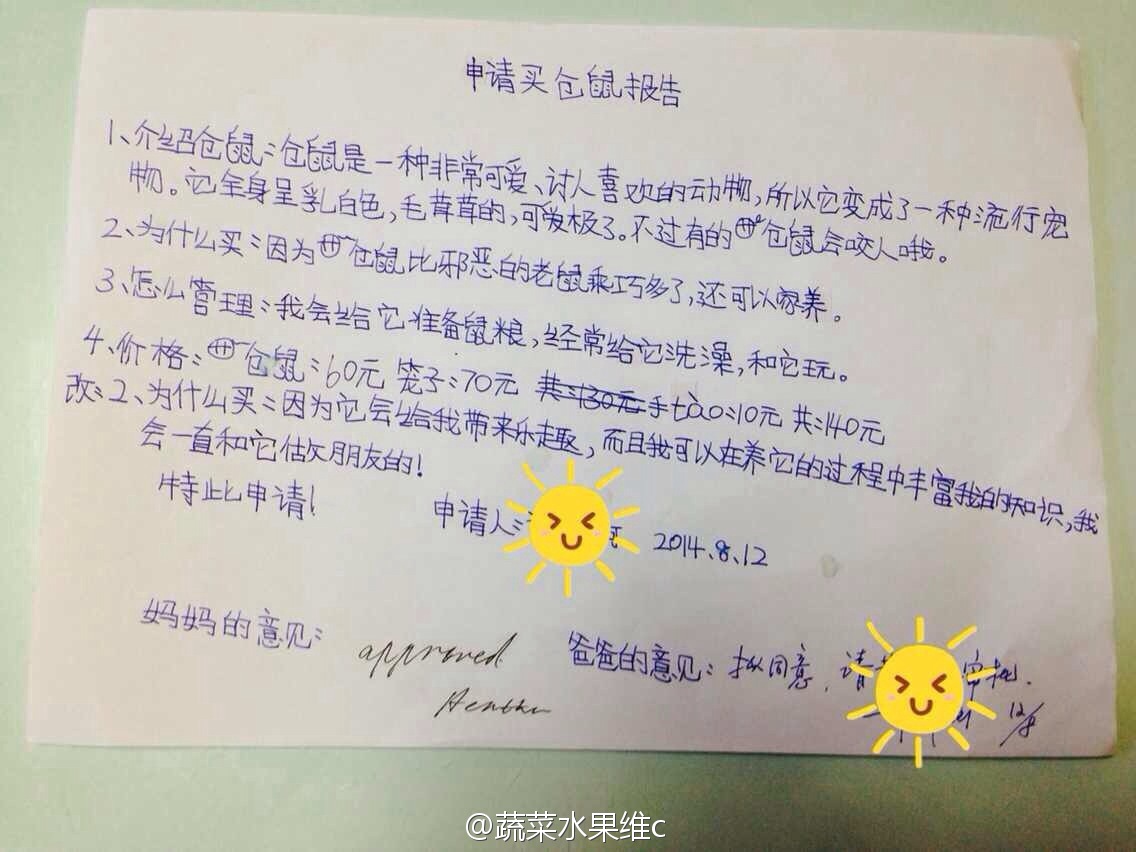 申请买仓鼠报告
1、介绍仓鼠:仓鼠是一种非常可爱、讨人喜欢的动物,所以它变成了一种流行宠
物。它全身呈乳白色,毛茸茸的,可爱极了。不过有的仓鼠会咬人哦。
2、为什么买:因为仓鼠比邪恶的老鼠乖巧多了,还可以家养。
3、怎么管理:我会给它准备鼠粮,经常给它洗澡,和它玩。
4、价格:仓鼠:60元 笼子:70元 共:130元 手tào:10元 共:140元
改:2、为什么买:因为它会给我带来乐趣,而且我可以在养它的过程中丰富我的知识,我
会一直和它做朋友的!
特此申请!
申请人: 2014.8.12
妈妈的意见: approved 爸爸的意见:拟同意,请 审批.
12/8
@蔬菜水果维c